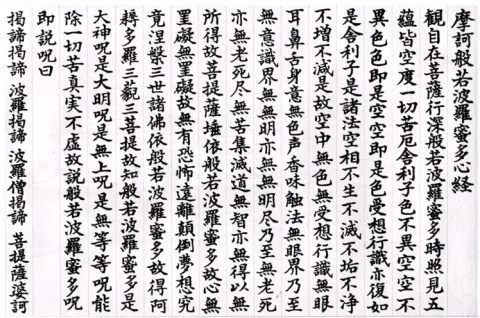 摩訶般若波羅蜜多心経
観自在菩薩行深般若波羅蜜多時照見五
蘊皆空度一切苦厄舎利子色不異空空不
異色色即是空空即是色受想行識亦復如
是舎利子是諸法空相不生不滅不垢不浄
不増不減是故空中無色無受想行識無眼
耳鼻舌身意無色声香味触法無眼界乃至
無意識界無無明亦無無明尽乃至無老死
亦無老死尽無苦集滅道無智亦無得以無
所得故菩提薩埵依般若波羅蜜多故心無
罣礙無罣礙故無有恐怖遠離顛倒夢想究
竟涅槃三世諸佛依般若波羅蜜多故得阿
耨多羅三藐三菩提故知般若波羅蜜多是
大神呪是大明呪是無上呪是無等等呪能
除一切苦真実不虚故説般若波羅蜜多呪
即説呪曰
揭諦揭諦 波羅揭諦 波羅僧揭諦 菩提薩婆訶